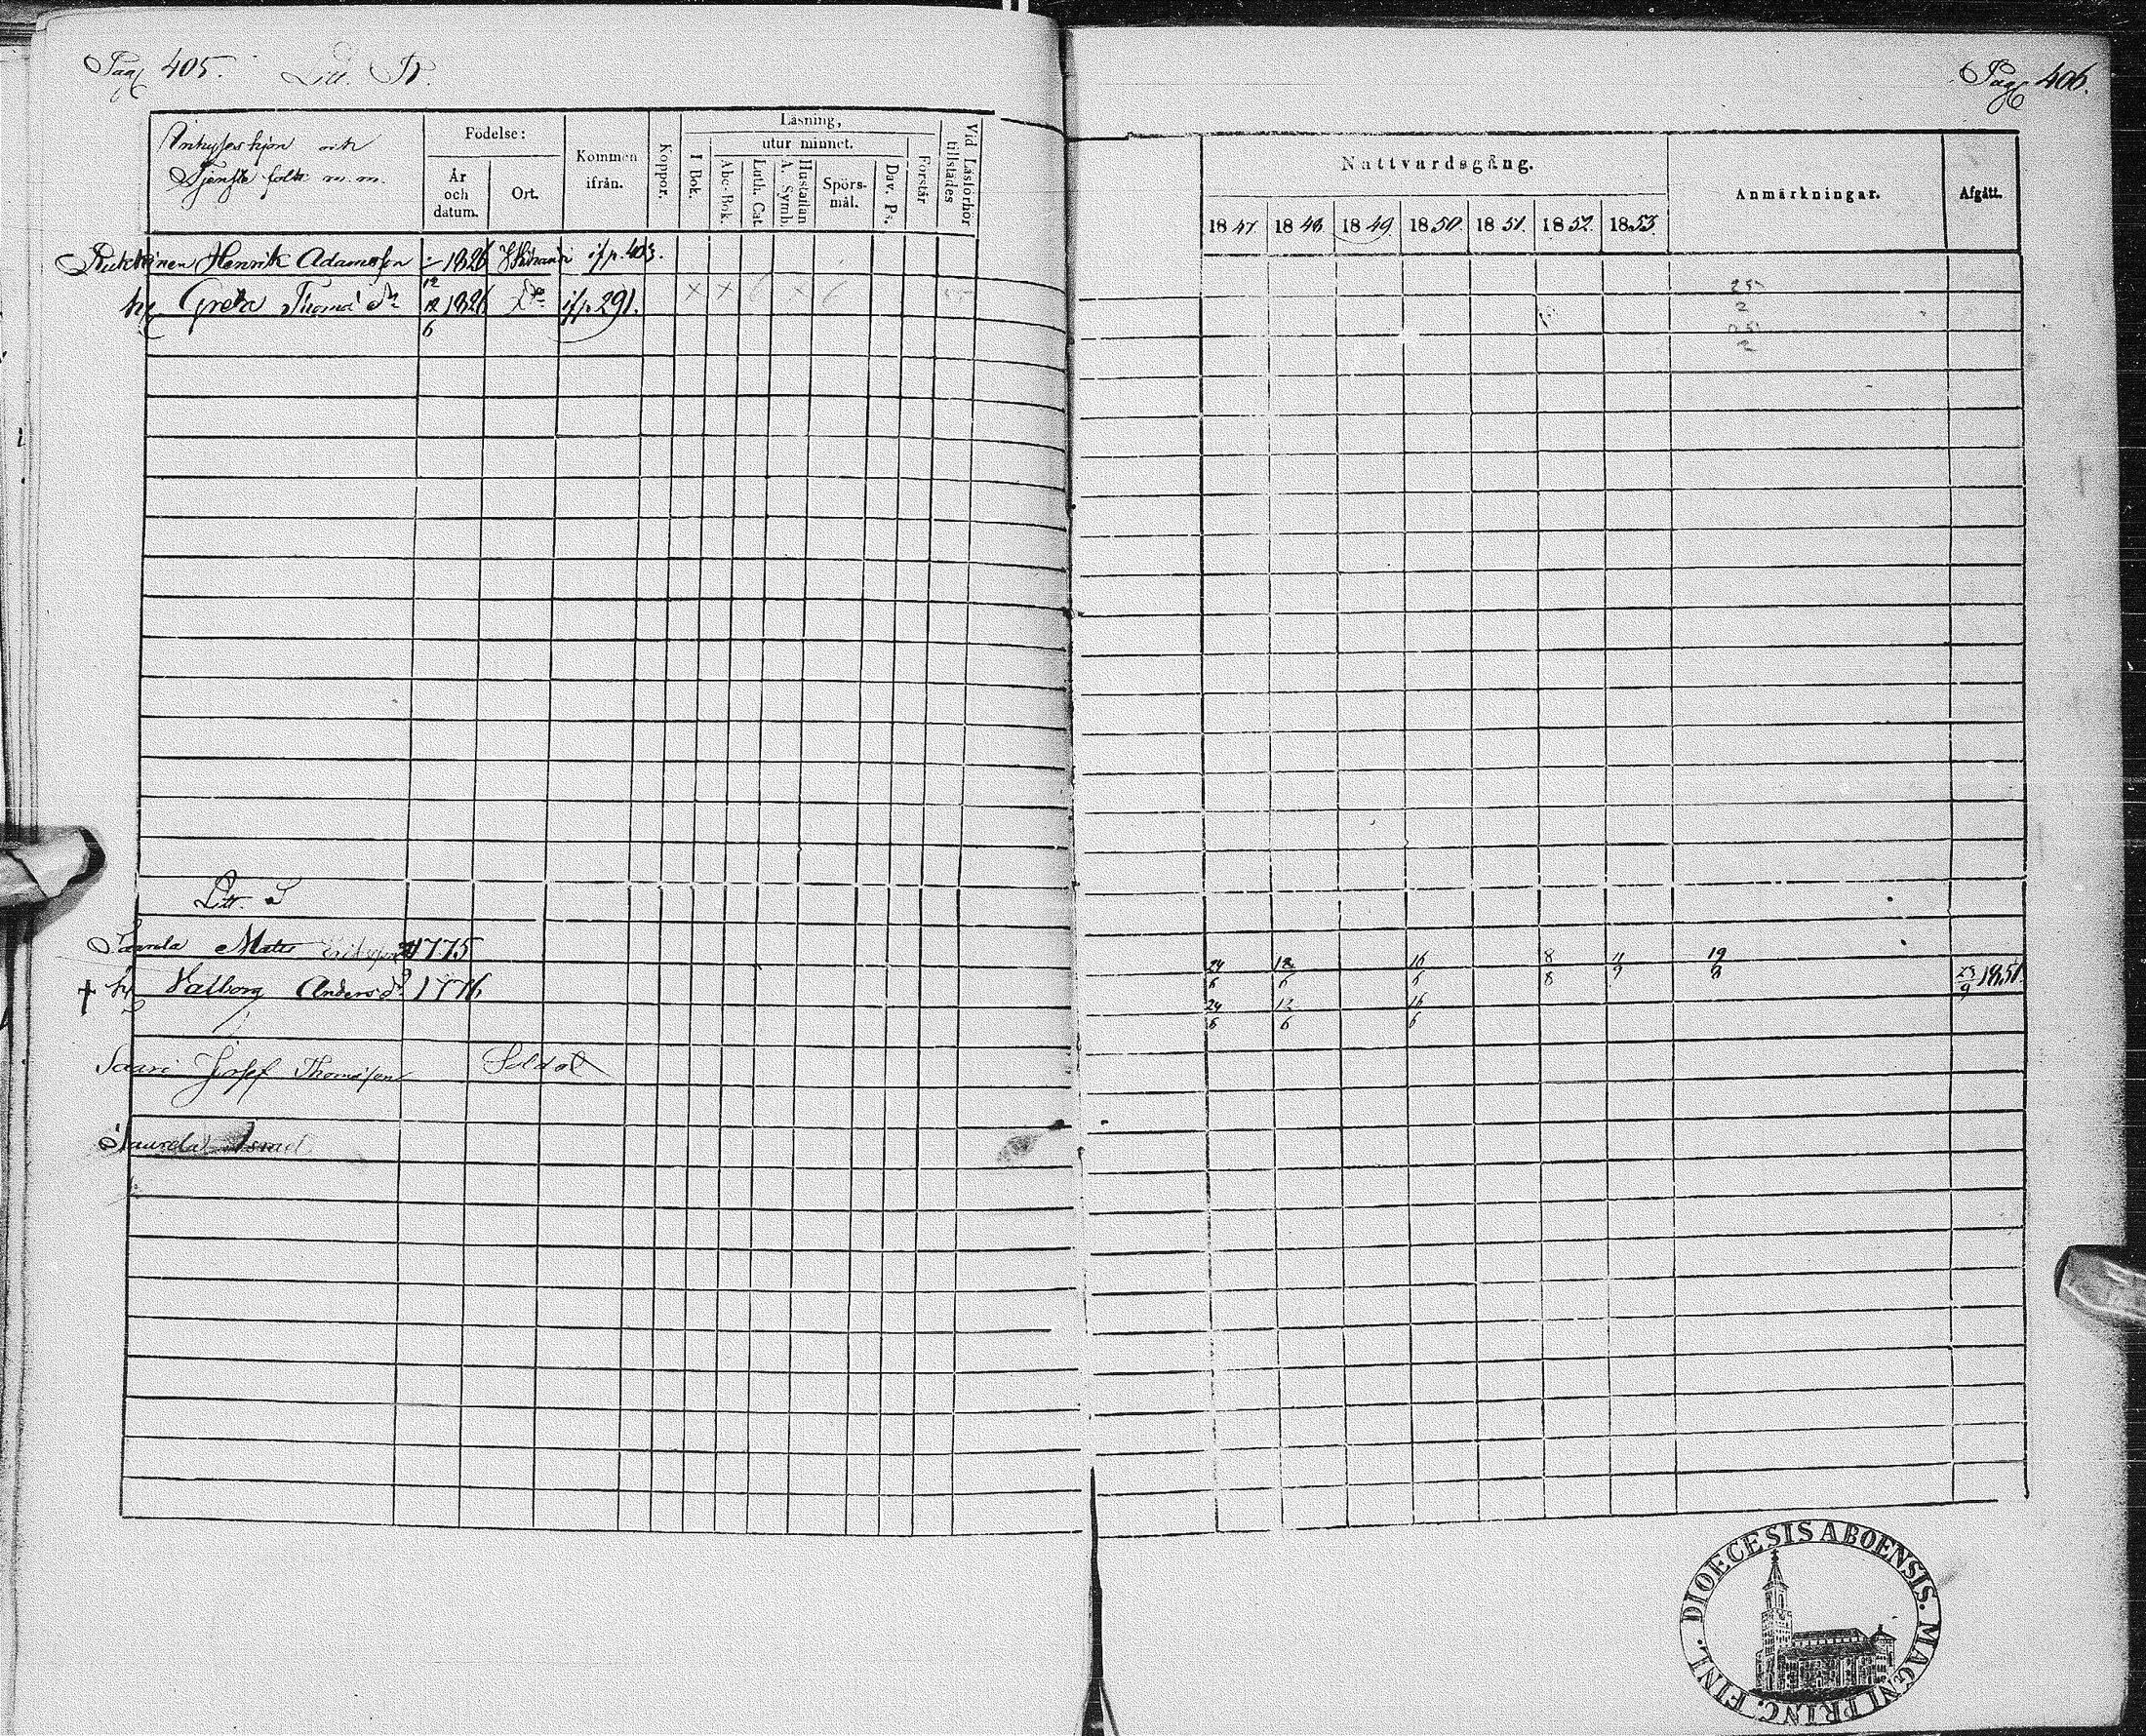 Pag 405. Litt. R.
Pag 406.
Inhyses hjon och
Tjenste folk m. m.
Födelse:
År
och
datum.
Ort.
Kommen
ifrån.
Koppor.
Läsning,
utur minnet.
I Bok.
Abc-Bok.
Luth. Cat.
Hustaflan
A. Symb.
Spörs-
mål.
Dav. Ps.
Förstår
Vid Läsförhör
tillstädes
Nattvardsgång.
1847 1848 1849 1850 1851 1852 1853
Anmärkningar.
Afgått.
Henrik Adamsson 1826 if p. 403.
hu Greta Thomæ dr 12/6 1826 Do if p. 291. × × ×
25
2
25
2
Litt. S
Matts Eriksson 1775 24/6 12/6 16/6 8/8 19/8
† hu Valborg Anders dr 1776 24/6 12/6 16/6 23/9 1851
Saari Josef Thomasson Soldat
DIOECESIS ABOENSIS. MAGNI PRINC. FINL.